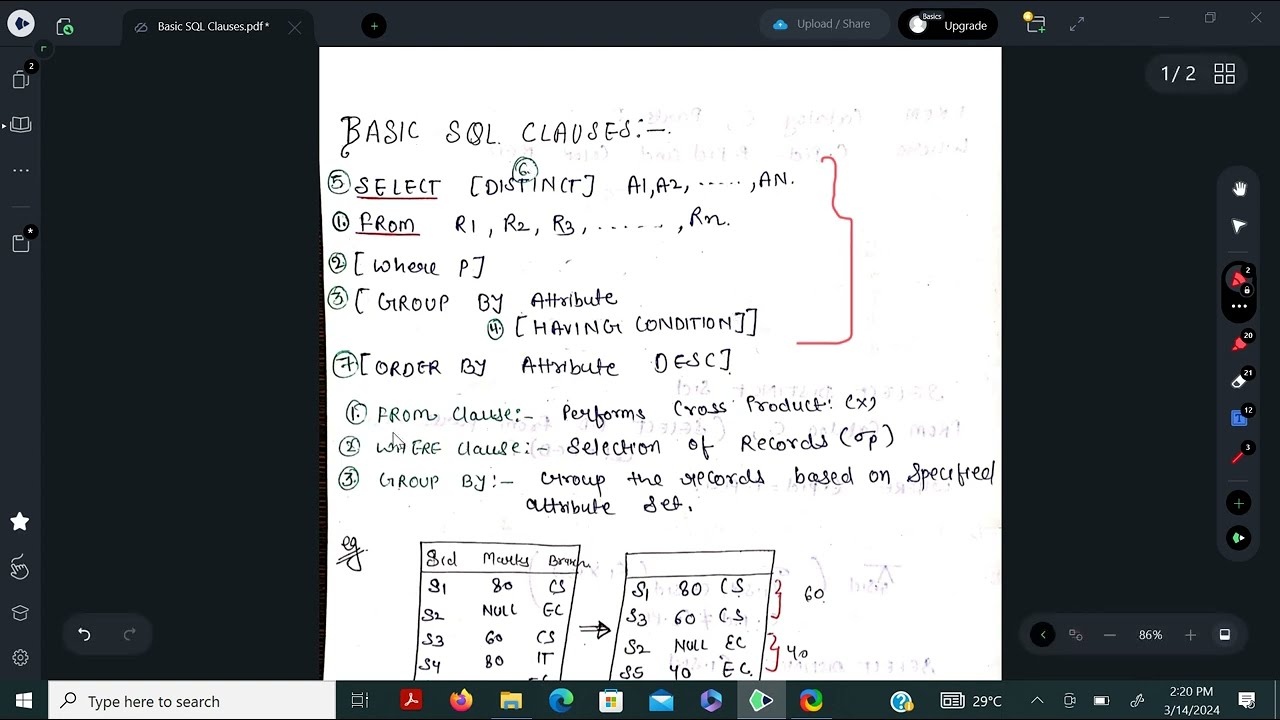 Basic SQL Clauses.pdf *
Upload / Share
Basics
Upgrade
2
1/2
BASIC SQL CLAUSES:-
⑤ SELECT [DISTINCT] ⑥ A1, A2, ......, AN.
①. FROM R1, R2, R3, ......., Rn.
② [Where P]
③ [GROUP BY Attribute
④ [HAVING CONDITION]]
⑦ [ORDER BY Attribute DESC]
①. FROM Clause:- Performs Cross Product: (X)
② WHERE Clause:- Selection of Records (σp)
③. GROUP BY:- Group the records based on Specified
attribute set.
eg
Sid Marks Branch
S1 80 CS
S2 NULL EC
S3 60 CS
S4 80 IT
⇒
S1 80 CS
S3 60 CS
60
S2 NULL EC
S5 40 EC
40
2
20
21
12
3
86%
Type here to search
29°C
2:20 PM
3/14/2024